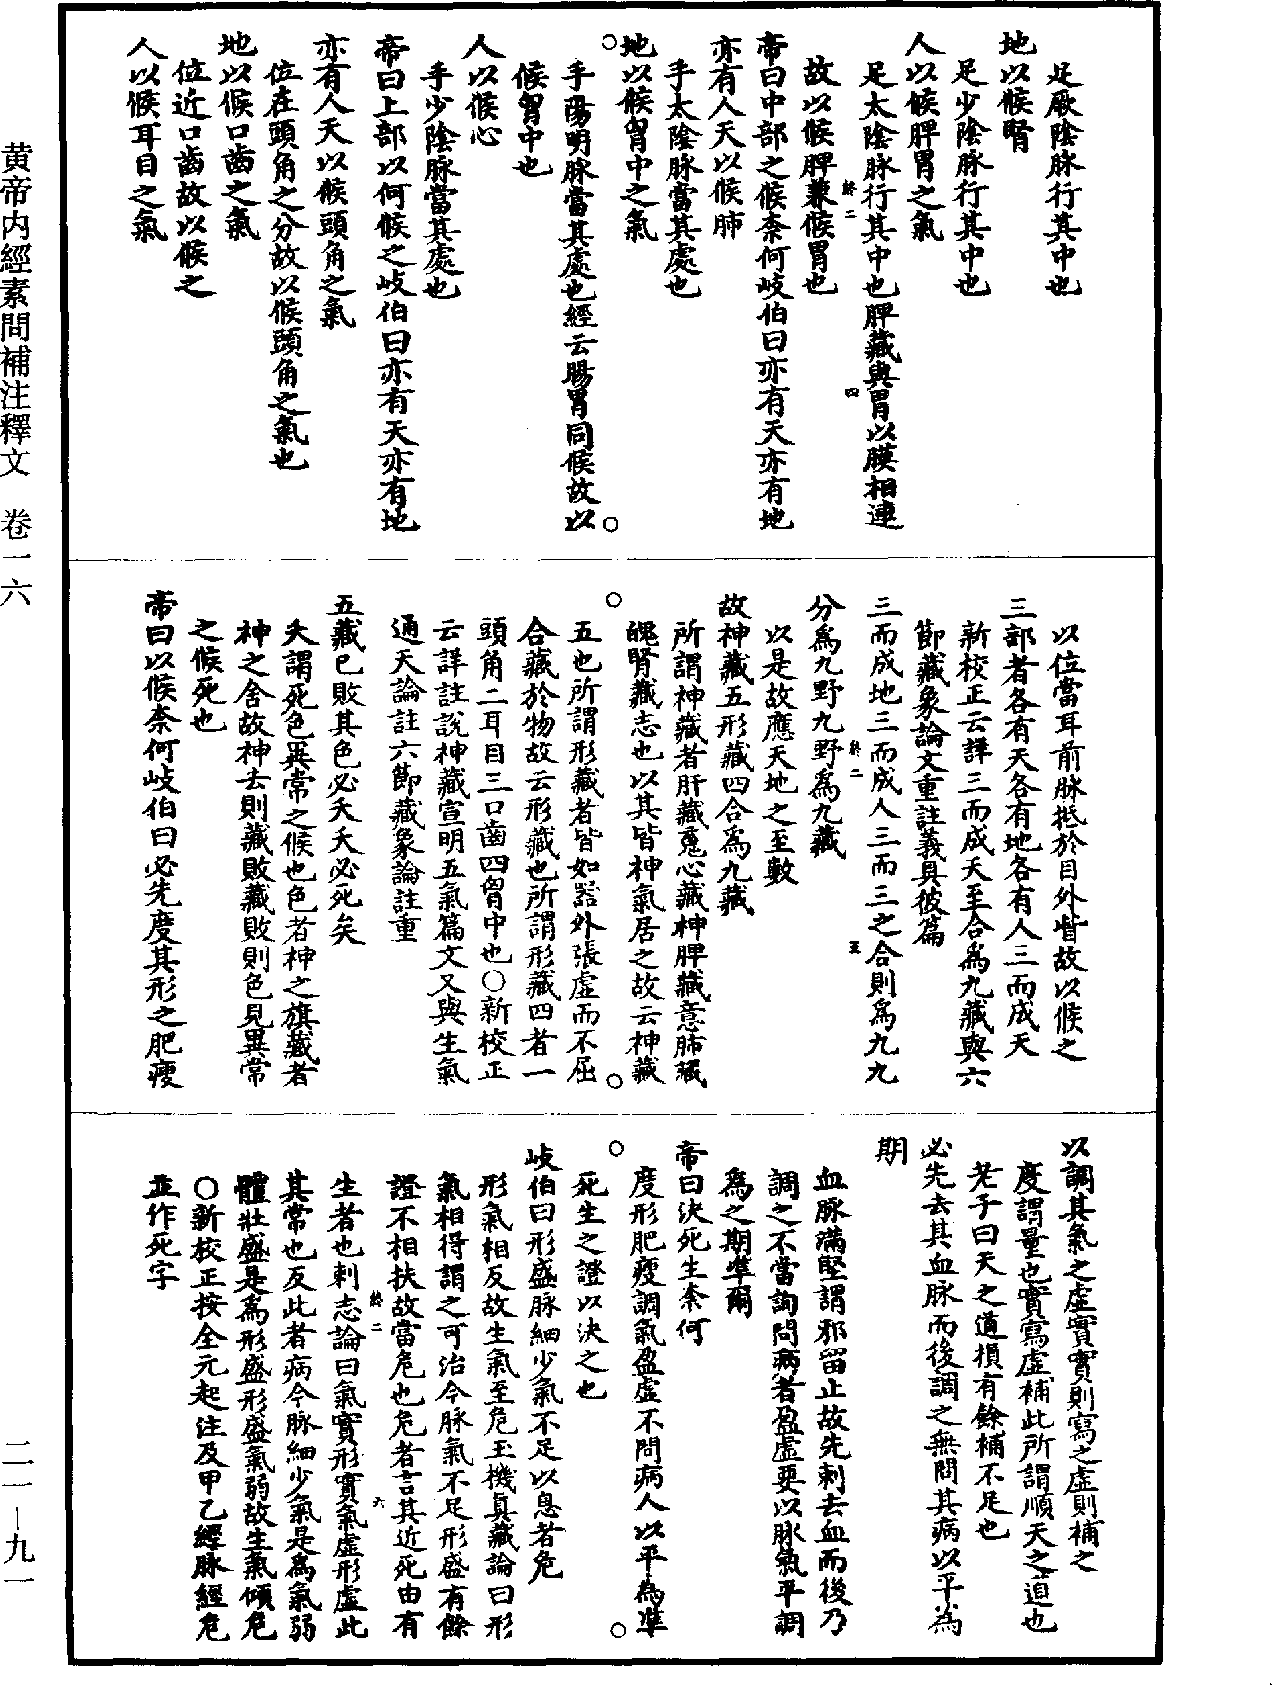 足厥陰脉行其中也
地以候腎
足少陰脉行其中也
人以候脾胃之氣
足太陰脉行其中也脾藏與胃以膜相連
故以候脾兼候胃也
帝曰中部之候柰何岐伯曰亦有天亦有地
亦有人天以候肺
手太陰脉當其處也
地以候胷中之氣
手陽明脉當其處也經云腸胃同候故以
候胷中也
人以候心
手少陰脉當其處也
帝曰上部以何候之岐伯曰亦有天亦有地
亦有人天以候頭角之氣
位在頭角之分故以候頭角之氣也
地以候口齒之氣
位近口齒故以候之
人以候耳目之氣
以位當耳前脉抵於目外眥故以候之
三部者各有天各有地各有人三而成天
新校正云詳三而成天至合爲九藏與六
節藏象論文重註義具彼篇
三而成地三而成人三而三之合則爲九九
分爲九野九野爲九藏
以是故應天地之至數
故神藏五形藏四合爲九藏
所謂神藏者肝藏䰟心藏神脾藏意肺藏
魄腎藏志也以其皆神氣居之故云神藏
五也所謂形藏者皆如器外張虛而不屈
合藏於物故云形藏也所謂形藏四者一
頭角二耳目三口齒四胷中也○新校正
云詳註說神藏宣明五氣篇文又與生氣
通天論註六節藏象論註重
五藏已敗其色必夭夭必死矣
夭謂死色異常之候也色者神之旗藏者
神之舍故神去則藏敗藏敗則色見異常
之候死也
帝曰以候柰何岐伯曰必先度其形之肥瘦
以調其氣之虛實實則寫之虛則補之
度謂量也實寫虛補此所謂順天之道也
老子曰天之道損有餘補不足也
必先去其血脉而後調之無問其病以平為
期
血脉滿堅謂邪留止故先刺去血而後乃
調之不當詢問病者盈虛要以脉氣平調
爲之期準爾
帝曰決死生柰何
度形肥瘦調氣盈虛不問病人以平為準
死生之證以決之也
岐伯曰形盛脉細少氣不足以息者危
形氣相反故生氣至危玉機真藏論曰形
氣相得謂之可治今脉氣不足形盛有餘
證不相扶故當危也危者言其近死由有
生者也刺志論曰氣實形實氣虛形虛此
其常也反此者病今脉細少氣是爲氣弱
體壯盛是爲形盛形盛氣弱故生氣傾危
○新校正按全元起注及甲乙經脉經危
並作死字
黄帝内經素問補注釋文 卷一六
二一—九一